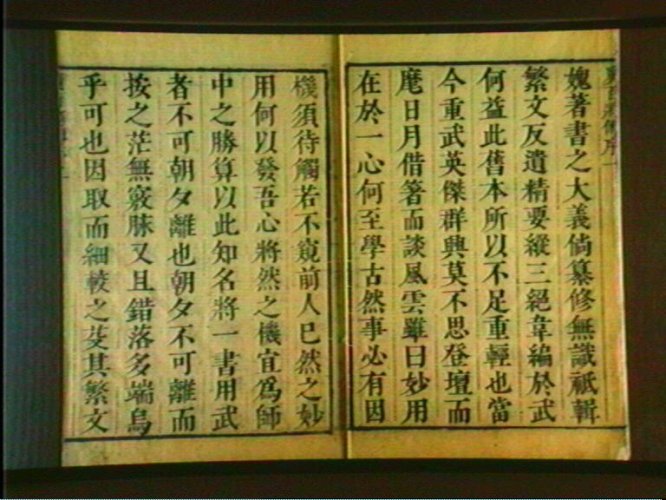 媿著書之大義倘纂修無識祇輯
繁文反遺精要縱三絕韋編於武
何益此舊本所以不足重輕也當
今重武英傑群興莫不思登壇而
麾日月借箸而談風雲雖曰妙用
在於一心何至學古然事必有因
機須待觸若不窺前人已然之妙
用何以發吾心將然之機宜為師
中之勝算以此知名將一書用武
者不可朝夕離也朝夕不可離而
按之茫無竅脉又且錯落多端烏
乎可也因取而細較之芟其繁文